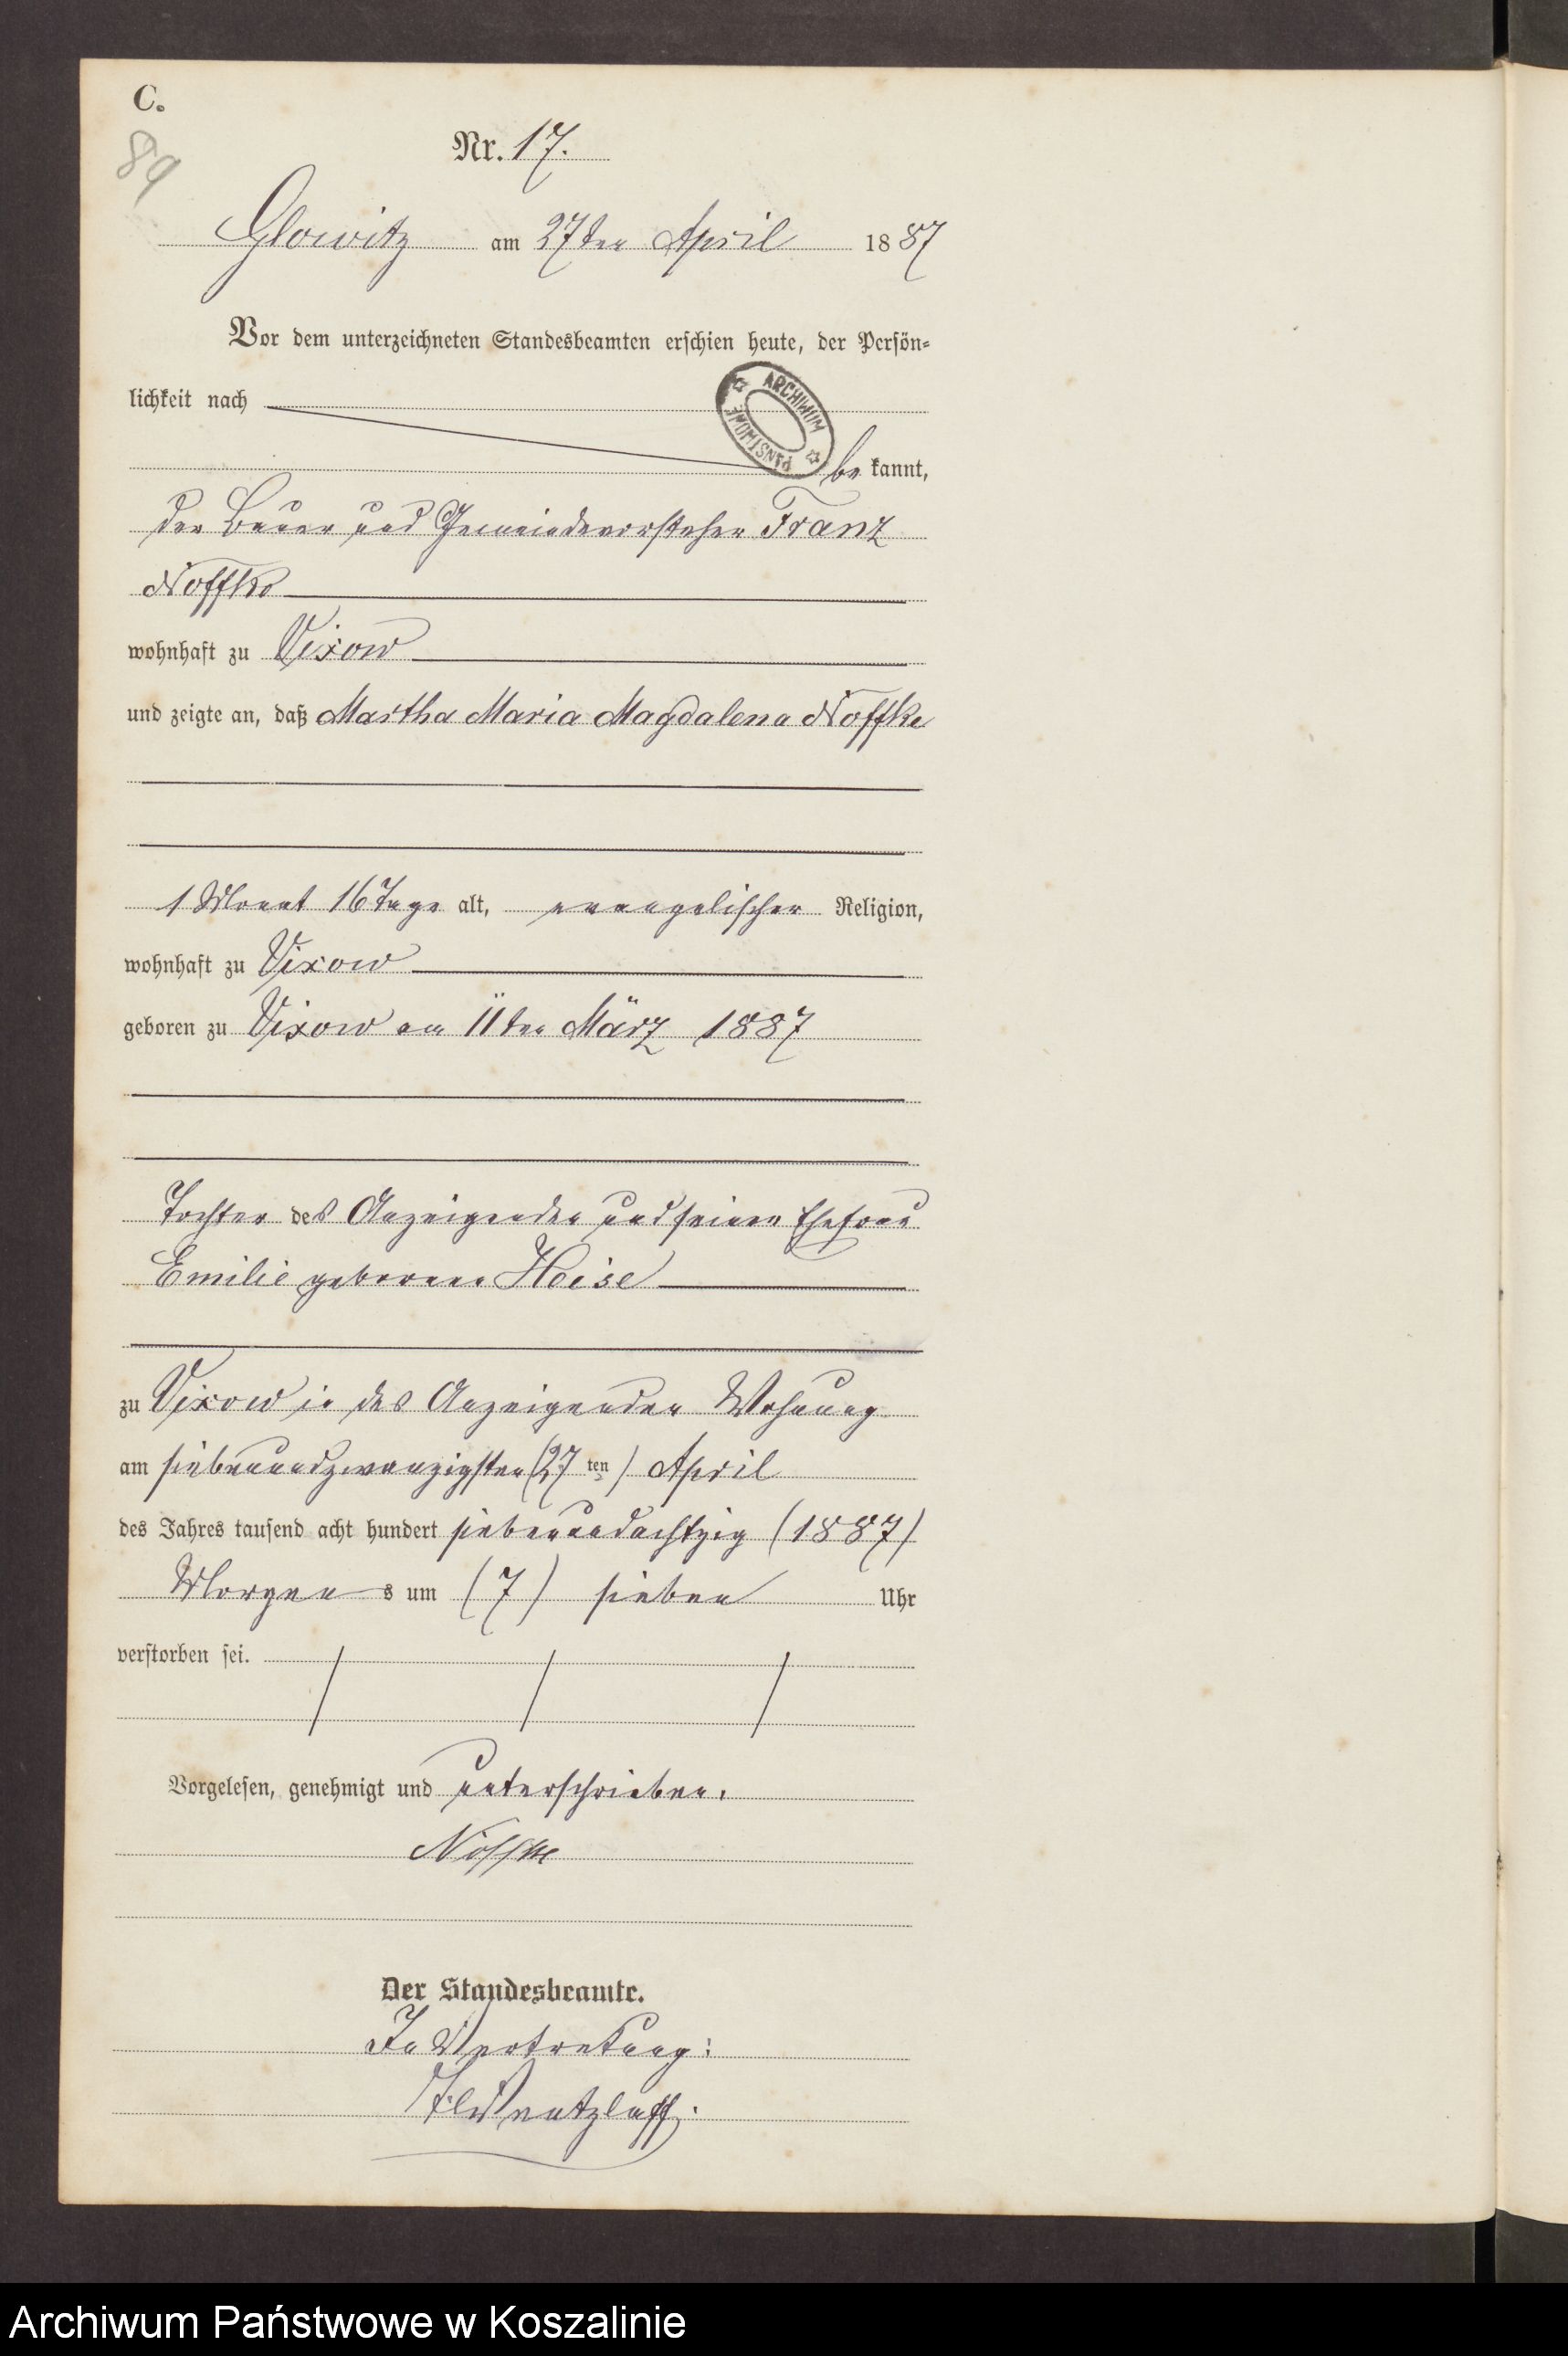 C.
89
Nr. 17.
Glowitz am 27ten April 1887
Vor dem unterzeichneten Standesbeamten erschien heute, der Persön-
lichkeit nach
ARCHIWUM PAŃSTWOWE
be kannt,
der Bauer und Gemeindevorsteher Franz
Noffke
wohnhaft zu Vixow
und zeigte an, daß Martha Maria Magdalena Noffke
1 Monat 16 Tage alt, evangelischer Religion,
wohnhaft zu Vixow
geboren zu Vixow am 11ten März 1887
Tochter des Anzeigenden und seiner Ehefrau
Emilie geborene Heise
zu Vixow in des Anzeigenden Wohnung
am siebenundzwanzigsten (27ten) April
des Jahres tausend acht hundert siebenundachtzig (1887)
Morgens um (7) sieben Uhr
verstorben sei.
Vorgelesen, genehmigt und unterschrieben.
Noffke
Der Standesbeamte.
In Vertretung:
Wentzlaff.
Archiwum Państwowe w Koszalinie